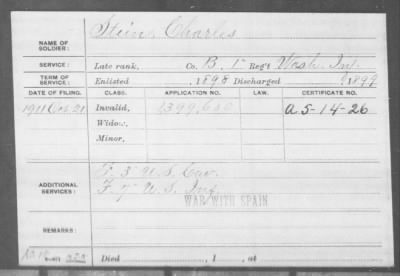 NAME OF SOLDIER: Stein, Charles
SERVICE: Late rank, Co. B, 1" Reg't Wash. Inf.
TERM OF SERVICE: Enlisted 1898 Discharged 1899
DATE OF FILING. CLASS. APPLICATION NO. LAW. CERTIFICATE NO.
1911 Oct 21 Invalid, 1399,600 a 5-14-26
Widow,
Minor,
ADDITIONAL SERVICES: F. 3" U.S. Cav.
F. 7" U.S. Inf.
WAR WITH SPAIN
REMARKS:
Died , 1 , at